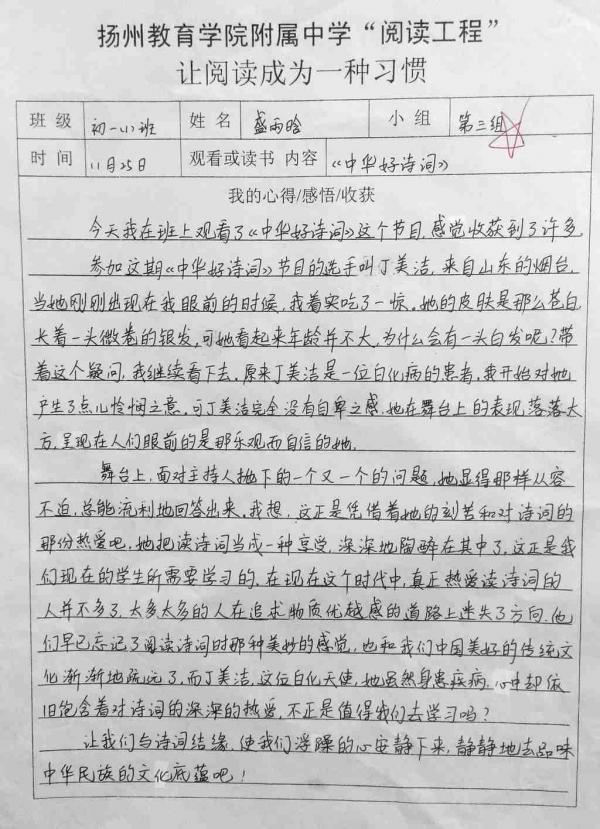 扬州教育学院附属中学“阅读工程”
让阅读成为一种习惯
班 级 初一(1)班 姓 名 盛雨晗 小 组 第三组
时 间 11月25日 观看或读书 内容 《中华好诗词》
我的心得/感悟/收获
今天我在班上观看了《中华好诗词》这个节目,感觉收获到了许多
参加这期《中华好诗词》节目的选手叫丁美洁,来自山东的烟台,
当她刚刚出现在我眼前的时候,我着实吃了一惊。她的皮肤是那么苍白
长着一头微卷的银发,可她看起来年龄并不大,为什么会有一头白发呢?带
着这个疑问,我继续看下去。原来丁美洁是一位白化病的患者,我开始对她
产生了点儿怜悯之意,可丁美洁完全没有自卑之感,她在舞台上的表现,落落大
方,呈现在人们眼前的是那乐观而自信的她.
舞台上,面对主持人抛下的一个又一个的问题,她显得那样从容
不迫,总能流利地回答出来。我想,这正是凭借着她的刻苦和对诗词的
那份热爱吧,她把读诗词当成一种享受,深深地陶醉在其中了,这正是我
们现在的学生所需要学习的,在现在这个时代中,真正热爱读诗词的
人并不多了,太多太多的人在追求物质优越感的道路上迷失了方向,他
们早已忘记了阅读诗词时那种美妙的感觉,也和我们中国美好的传统文
化渐渐地疏远了,而丁美洁,这位白化天使,她虽然身患疾病,心中却依
旧饱含着对诗词的深深的热爱,不正是值得我们去学习吗?
让我们与诗词结缘,使我们浮躁的心安静下来,静静地去品味
中华民族的文化底蕴吧!